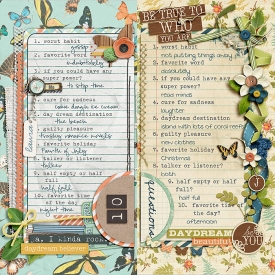 1. worst habit
gossip
2. favorite word
3. if you could have any
super power?
to stop time
4. cure for sadness
5. day dream destination
the beach
6. guilty pleasure
7. favorite holiday
Fourth of July
8. talker or listener
talker
9. half empty or half
full
half full
10. favorite time
of the day
night time
10
a. I kinda rock
daydream believer
BE TRUE TO
WHO
YOU ARE
1. worst habit
not putting things away
2. favorite word
absolutely
3. if you could have any
super power?
read minds
4. cure for sadness
laughter
5. daydream destination
6. guilty pleasure
new clothes
7. favorite holiday
Christmas
8. talker or listener?
both
9. half empty or half
full?
half full
10. favorite time of
the day?
afternoon
questions
J
DAYDREAM
beautiful
YOU